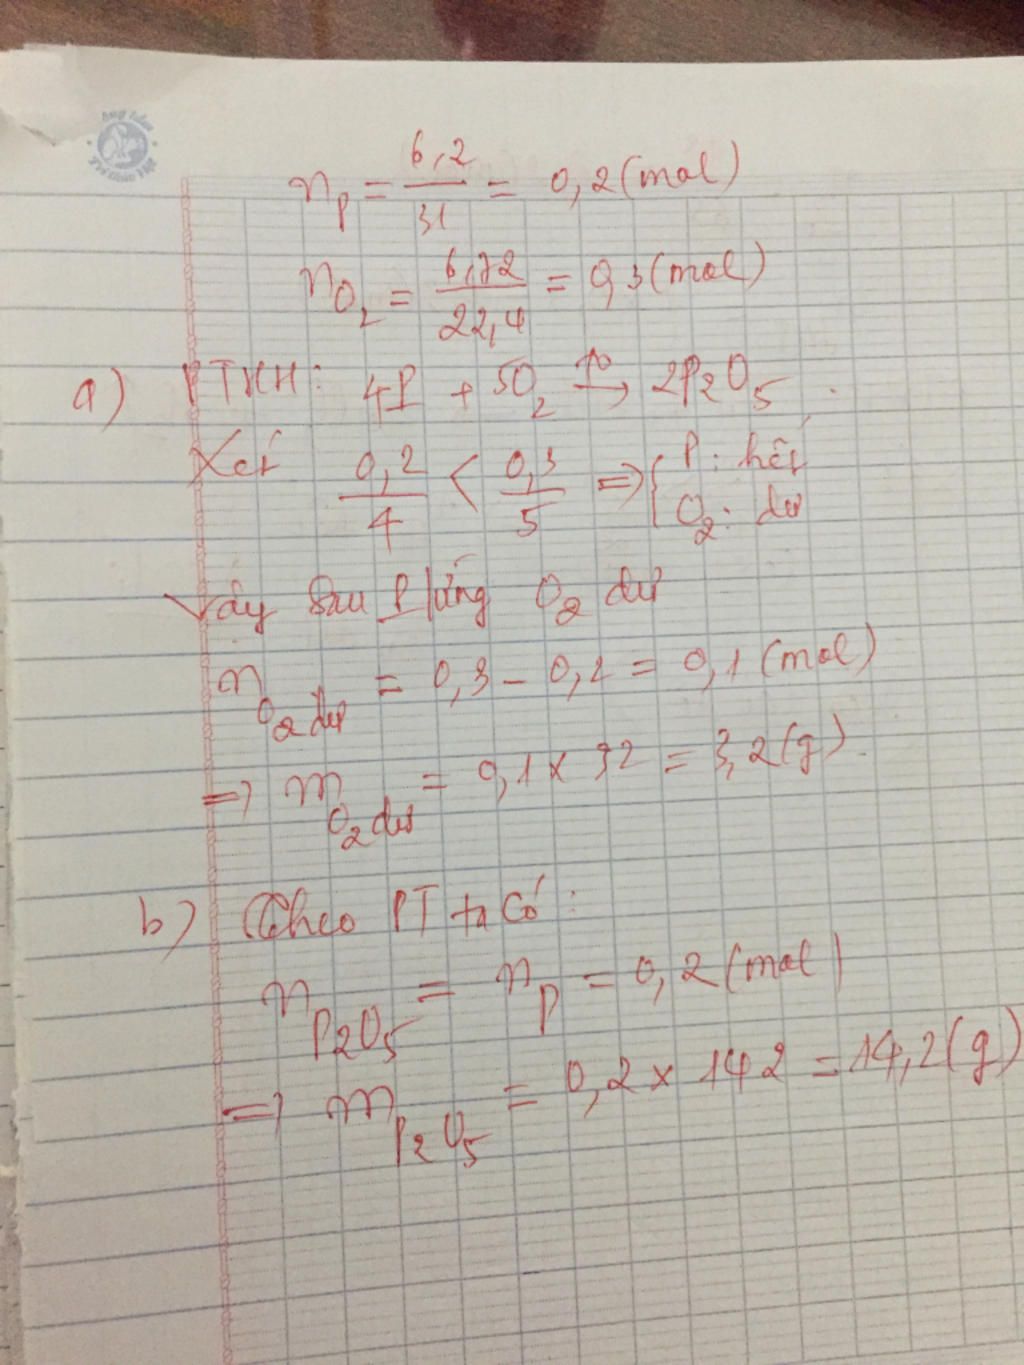 n_P = 6,2/31 = 0,2 (mol)
n_O₂ = 6,72/22,4 = 0,3 (mol)
a) PTHH: 4P + 5O₂ →(t°) 2P₂O₅.
Xét 0,2/4 < 0,3/5 => { P: hết
O₂: dư
Vậy sau P/ứng O₂ dư
n_O₂ dư = 0,3 - 0,2 = 0,1 (mol)
=> m_O₂ dư = 0,1 x 32 = 3,2 (g).
b) Theo PT ta có:
n_P₂O₅ = n_P = 0,2 (mol)
=> m_P₂O₅ = 0,2 x 142 = 14,2 (g)